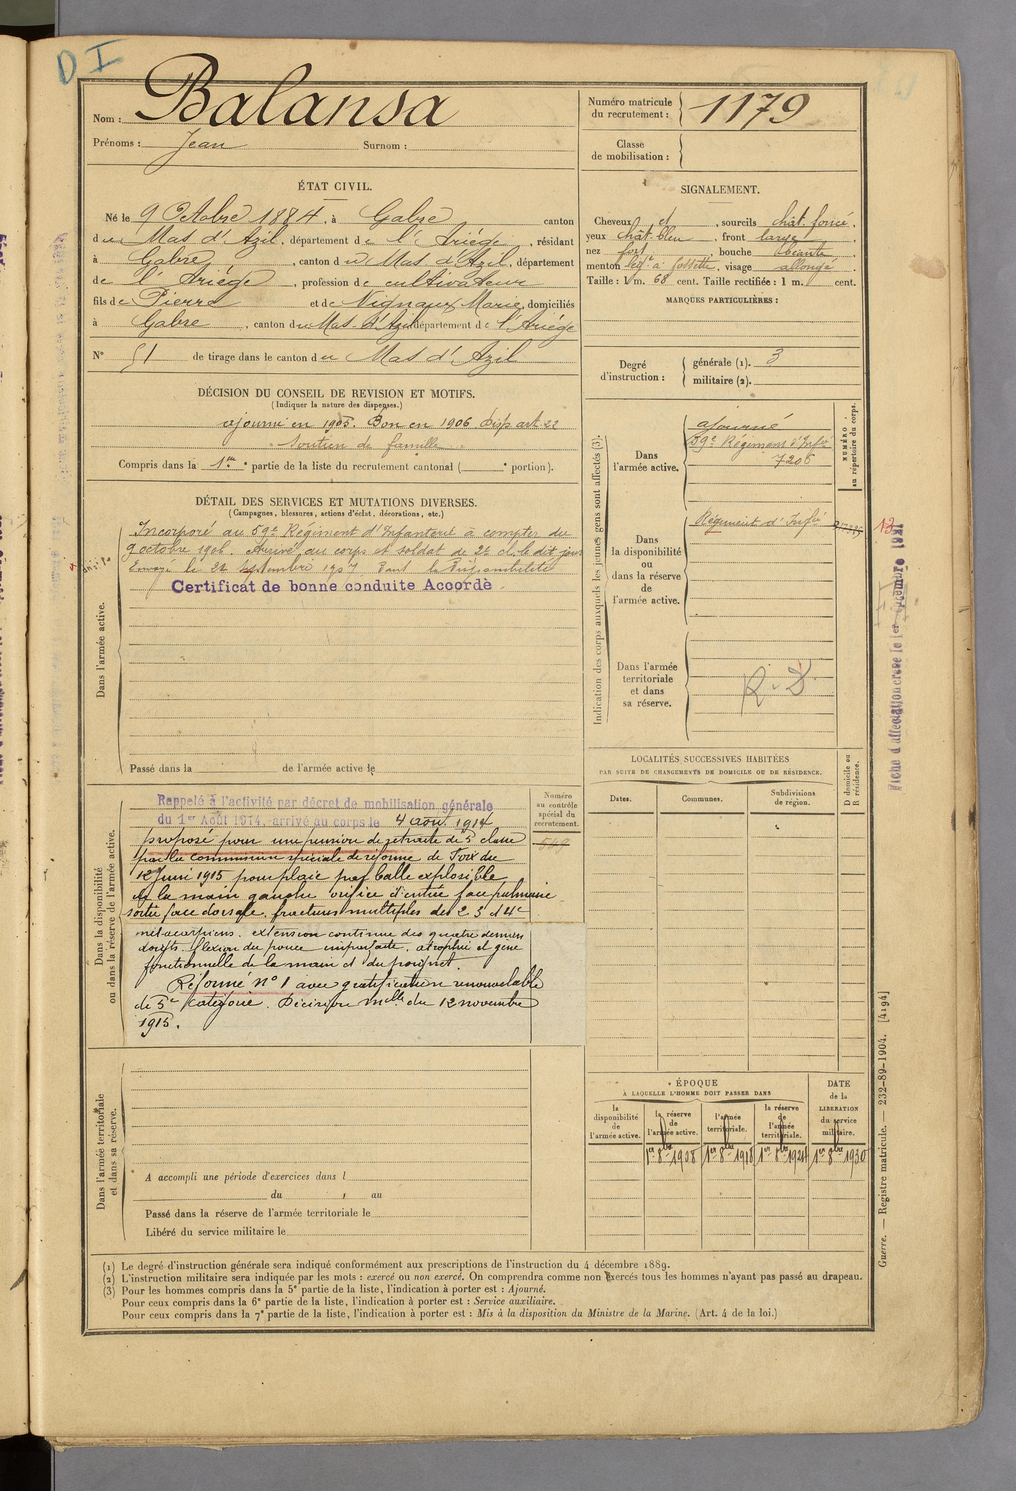 D I
Nom : Balansa
Prénoms : Jean Surnom :
Numéro matricule du recrutement : 1179
Classe de mobilisation :
ÉTAT CIVIL.
Né le 9 Octobre 1884, à Gabre canton
du Mas d'Azil, département de l'Ariége, résidant
à Gabre, canton du Mas d'Azil, département
de l'Ariége, profession de cultivateur
fils de Pierre et de Vignaux Marie, domiciliés
à Gabre, canton du Mas d'Azil département de l'Ariége
N° 51 de tirage dans le canton du Mas d'Azil
SIGNALEMENT.
Cheveux et, sourcils chât. foncé,
yeux chât. bleu, front large,
nez fort, bouche
menton à fossette, visage allongé
Taille : 1 m. 68 cent. Taille rectifiée : 1 m. cent.
MARQUES PARTICULIÈRES :
Degré d'instruction : générale (1). 3
militaire (2).
DÉCISION DU CONSEIL DE REVISION ET MOTIFS.
(Indiquer la nature des dispenses.)
ajourné en 1905. Bon en 1906 Disp. art 22
Soutien de famille
Compris dans la 1re partie de la liste du recrutement cantonal ( portion).
DÉTAIL DES SERVICES ET MUTATIONS DIVERSES.
(Campagnes, blessures, actions d'éclat, décorations, etc.)
Dans l'armée active.
Incorporé au 59e Régiment d'Infanterie à compter du
9 octobre 1906. Arrivé au corps et soldat de 2e cl. le dit jour
Envoyé le 22 septembre 1907 dans la Disponibilité
Certificat de bonne conduite Accordé
Passé dans la de l'armée active le
Indication des corps auxquels les jeunes gens sont affectés (3).
NUMÉRO au répertoire du corps.
Dans l'armée active.
ajourné
59e Régiment d'Infie
7206
Dans la disponibilité ou dans la réserve de l'armée active.
Régiment d'Infie
Dans l'armée territoriale et dans sa réserve.
R. D
LOCALITÉS SUCCESSIVES HABITÉES
PAR SUITE DE CHANGEMENTS DE DOMICILE OU DE RÉSIDENCE.
Dates. Communes. Subdivisions de région. D domicile ou R résidence.
Dans la disponibilité ou dans la réserve de l'armée active.
Numéro au contrôle spécial du recrutement.
549
Rappelé à l'activité par décret de mobilisation générale
du 1er Août 1914, arrivé au corps le 4 aout 1914
proposé pour une pension de retraite de 5e classe
par la commission spéciale de réforme de Foix du
12 Juin 1915 pour plaie par balle explosible
de la main gauche orifice d'entrée face palmaire
sortie face dorsale, fractures multiples des 2 3 et 4e
métacarpiens. extension continue des quatre derniers
doigts. flexion du pouce imparfaite, atrophie et gêne
fonctionnelle de la main et du poignet.
Réformé n° 1 avec gratification renouvelable
de 5e catégorie. Décision mlle du 12 novembre
1915.
Dans l'armée territoriale et dans sa réserve.
A accompli une période d'exercices dans l
du , au
Passé dans la réserve de l'armée territoriale le
Libéré du service militaire le
ÉPOQUE
À LAQUELLE L'HOMME DOIT PASSER DANS
DATE de la LIBÉRATION du service militaire.
la disponibilité de l'armée active. la réserve de l'armée active. l'armée territoriale. la réserve de l'armée territoriale.
1er 8bre 1908 1er 8bre 1918 1er 8bre 1924 1er 8bre 1930
(1) Le degré d'instruction générale sera indiqué conformément aux prescriptions de l'instruction du 4 décembre 1889.
(2) L'instruction militaire sera indiquée par les mots : exercé ou non exercé. On comprendra comme non exercés tous les hommes n'ayant pas passé au drapeau.
(3) Pour les hommes compris dans la 5e partie de la liste, l'indication à porter est : Ajourné.
Pour ceux compris dans la 6e partie de la liste, l'indication à porter est : Service auxiliaire.
Pour ceux compris dans la 7e partie de la liste, l'indication à porter est : Mis à la disposition du Ministre de la Marine. (Art. 4 de la loi.)
Guerre. — Registre matricule. — 232-89-1904. [4194]